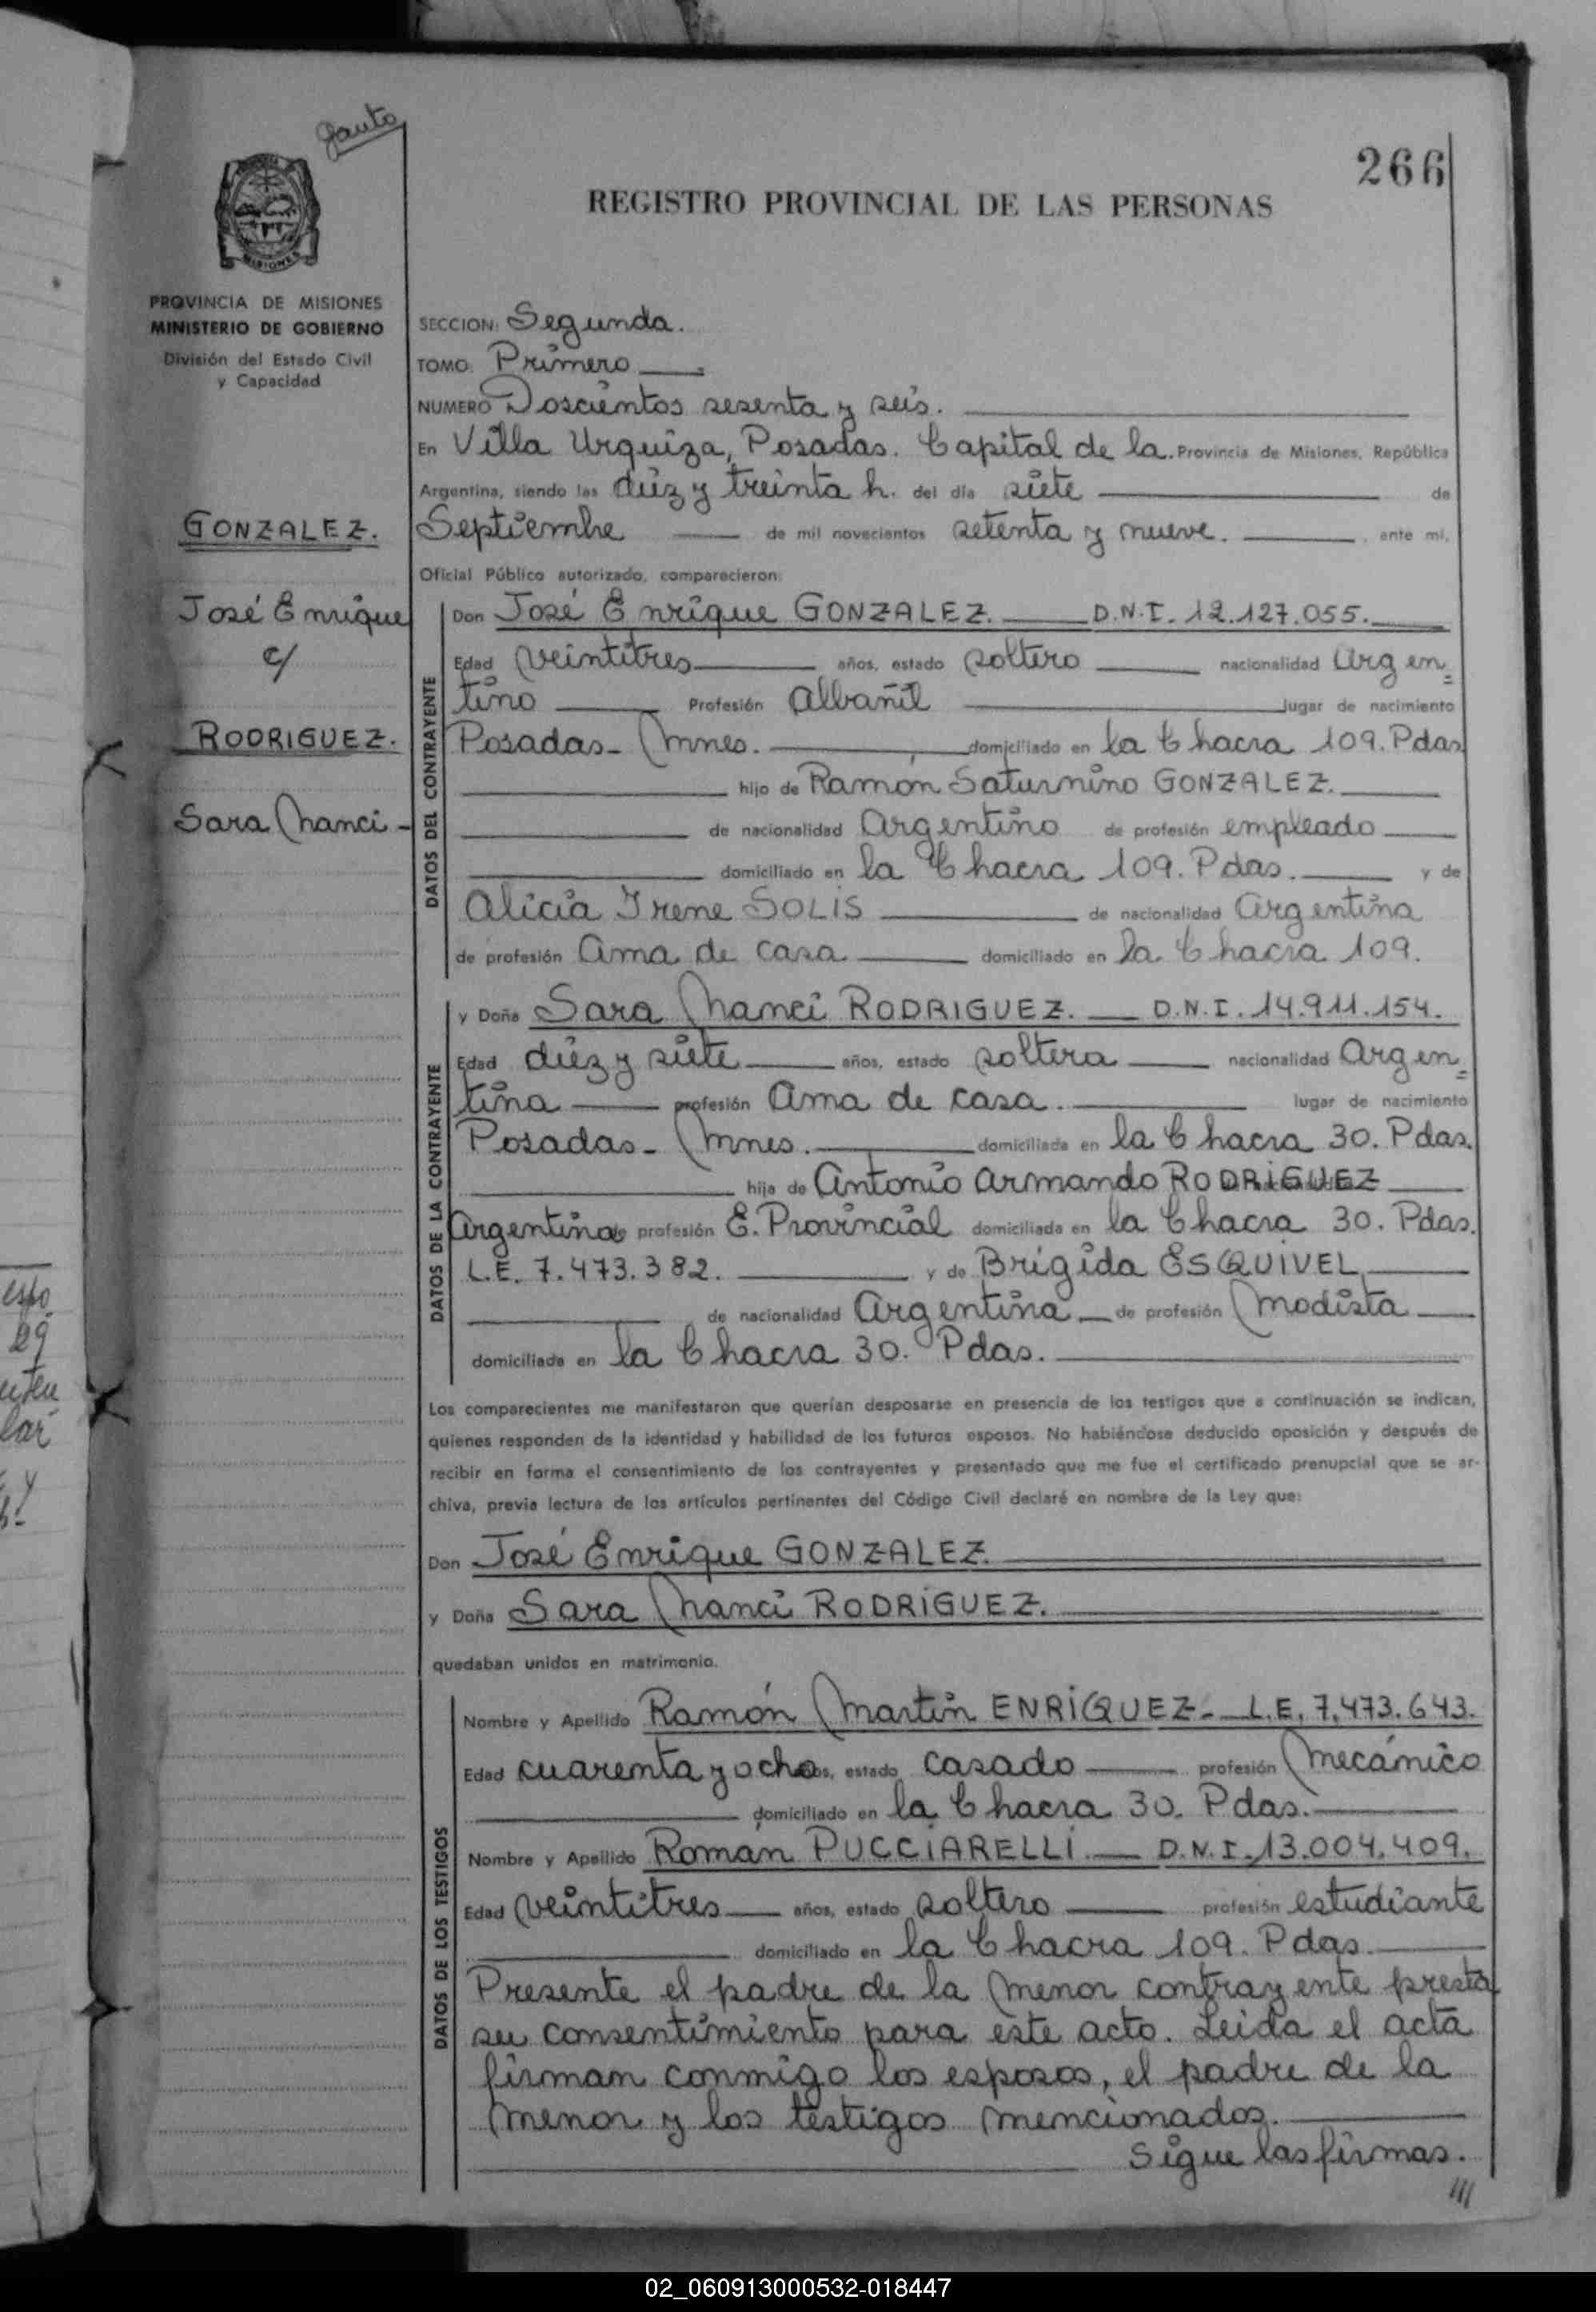 Janto
266
REGISTRO PROVINCIAL DE LAS PERSONAS
MISIONES
PROVINCIA DE MISIONES
MINISTERIO DE GOBIERNO
División del Estado Civil
y Capacidad
GONZALEZ.
José Enrique
c/
RODRIGUEZ.
Sara Nanci -
SECCION: Segunda.
TOMO: Primero
NUMERO Doscientos sesenta y seis.
En Villa Urquiza, Posadas. Capital de la. Provincia de Misiones, República
Argentina, siendo las diez y treinta h. del día siete de
Septiembre de mil novecientos setenta y nueve. ante mí,
Oficial Público autorizado, comparecieron:
DATOS DEL CONTRAYENTE
Don José Enrique GONZALEZ. D.N.I. 12.127.055.
Edad veintitres años, estado soltero nacionalidad argen=
tino Profesión albañil lugar de nacimiento
Posadas - Mnes. domiciliado en la Chacra 109. Pdas
hijo de Ramón Saturnino GONZALEZ.
de nacionalidad argentino de profesión empleado
domiciliado en la Chacra 109. Pdas. y de
Alicia Irene SOLIS de nacionalidad argentina
de profesión ama de casa domiciliado en la Chacra 109.
DATOS DE LA CONTRAYENTE
y Doña Sara Nanci RODRIGUEZ. D.N.I. 14.911.154.
Edad diez y siete años, estado soltera nacionalidad argen=
tina profesión ama de casa. lugar de nacimiento
Posadas - Mnes. domiciliada en la Chacra 30. Pdas.
hija de Antonio Armando RODRIGUEZ
argentino de profesión E. Provincial domiciliada en la Chacra 30. Pdas.
L.E. 7.473.382. y de Brígida ESQUIVEL
de nacionalidad argentina de profesión Modista
domiciliada en la Chacra 30. Pdas.
Los comparecientes me manifestaron que querían desposarse en presencia de los testigos que a continuación se indican,
quienes responden de la identidad y habilidad de los futuros esposos. No habiéndose deducido oposición y después de
recibir en forma el consentimiento de los contrayentes y presentado que me fue el certificado prenupcial que se ar-
chiva, previa lectura de los artículos pertinentes del Código Civil declaré en nombre de la Ley que:
Don José Enrique GONZALEZ.
y Doña Sara Nanci RODRIGUEZ.
quedaban unidos en matrimonio.
DATOS DE LOS TESTIGOS
Nombre y Apellido Ramón Martín ENRIQUEZ - L.E. 7.473.643.
Edad cuarenta y ocho años, estado casado profesión Mecánico
domiciliado en la Chacra 30. Pdas.
Nombre y Apellido Roman PUCCIARELLI. D.N.I. 13.004.409.
Edad veintitres años, estado soltero profesión estudiante
domiciliado en la Chacra 109. Pdas.
Presente el padre de la menor contrayente presta
su consentimiento para este acto. Leida el acta
firman conmigo los esposos, el padre de la
menor y los testigos mencionados.
Sigue las firmas.
///
02_060913000532-018447